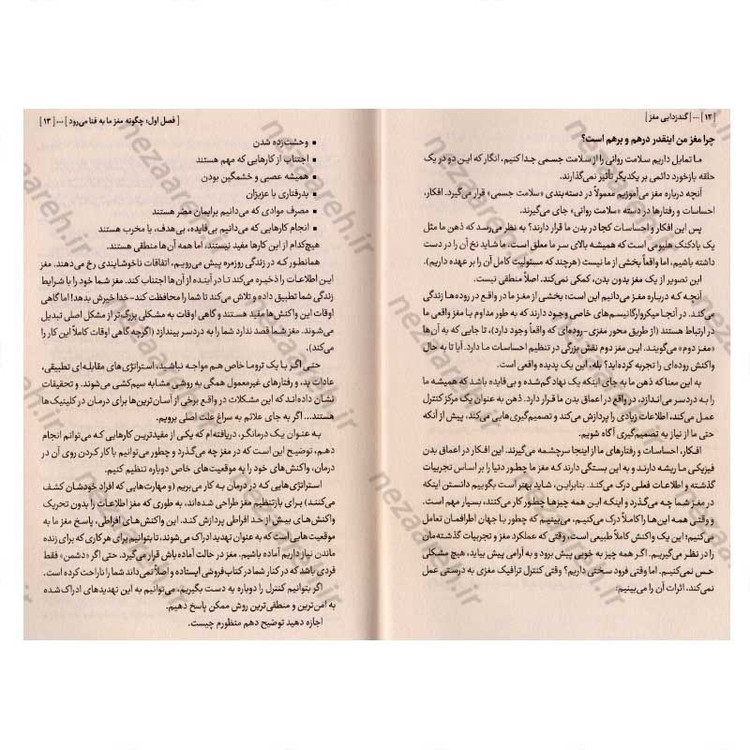 | ۱۲ | ... | گندزدایی مغز |
چرا مغز من اینقدر درهم و برهم است؟
ما تمایل داریم سلامت روانی را از سلامت جسمی جدا کنیم، انگار که این دو در یک
حلقه بازخورد دائمی بر یکدیگر تأثیر نمی‌گذارند.
آنچه درباره مغز می‌آموزیم معمولاً در دسته‌بندی «سلامت جسمی» قرار می‌گیرد. افکار،
احساسات و رفتارها در دسته «سلامت روانی» جای می‌گیرند.
پس این افکار و احساسات کجا در بدن ما قرار دارند؟ به نظر می‌رسد که ذهن ما مثل
یک بادکنک هلیومی است که همیشه بالای سر ما معلق است. ما شاید نخ آن را در دست
داشته باشیم، اما واقعاً بخشی از ما نیست (هرچند که مسئولیت کامل آن را بر عهده داریم).
این تصویر از یک مغز بدون بدن، کمکی نمی‌کند. اصلاً منطقی نیست.
آنچه که درباره مغز می‌دانیم این است: بخشی از مغز ما در واقع در روده‌ها زندگی
می‌کند. در آنجا میکروارگانیسم‌های خاصی وجود دارند که به طور مداوم با مغز واقعی ما
در ارتباط هستند (از طریق محور مغزی-روده‌ای که واقعاً وجود دارد)، تا جایی که به آن‌ها
«مغز دوم» می‌گویند. این مغز دوم نقش بزرگی در تنظیم احساسات ما دارد. آیا تا به حال
واکنش روده‌ای را تجربه کرده‌اید؟ بله، این یک پدیده واقعی است.
به این معناکه ذهن ما به جای اینکه یک نهاد گم‌شده و بی‌فایده باشد که همیشه ما
را به دردسر می‌اندازد، در واقع در اعماق بدن ما قرار دارد. ذهن به عنوان یک مرکز کنترل
عمل می‌کند، اطلاعات زیادی را پردازش می‌کند و تصمیم‌گیری‌هایی می‌کند، پیش از آنکه
حتی ما از نیاز به تصمیم‌گیری آگاه شویم.
افکار، احساسات و رفتارهای ما از اینجا سرچشمه می‌گیرند. این افکار در اعماق بدن
فیزیکی ما ریشه دارند و به این بستگی دارند که مغز ما چطور دنیا را بر اساس تجربیات
گذشته و اطلاعات فعلی درک می‌کند. بنابراین، شاید بهتر است بگوییم دانستن اینکه
در مغز شما چه می‌گذرد و اینکه این همه چیزها چطور کار می‌کنند، بسیار مهم است.
و وقتی همه این‌ها را کاملاً درک می‌کنیم، می‌بینیم که چطور با جهان اطرافمان تعامل
می‌کنیم؛ این یک واکنش کاملاً طبیعی است، وقتی که عملکرد مغز و تجربیات گذشته‌مان
را در نظر می‌گیریم. اگر همه چیز به خوبی پیش برود و به آرامی پیش بیاید، هیچ مشکلی
حس نمی‌کنیم. اما وقتی فرود سختی داریم؟ وقتی کنترل ترافیک مغزی به درستی عمل
نمی‌کند، اثرات آن را می‌بینیم:
| فصل اول: چگونه مغز ما به فنا می‌رود | ... | ۱۳ |
▪ وحشت‌زده شدن
▪ اجتناب از کارهایی که مهم هستند
▪ همیشه عصبی و خشمگین بودن
▪ بدرفتاری با عزیزان
▪ مصرف موادی که می‌دانیم برایمان مضر هستند
▪ انجام کارهایی که می‌دانیم بی‌فایده، بی‌هدف، یا مخرب هستند
هیچ‌کدام از این کارها مفید نیستند، اما همه آن‌ها منطقی هستند.
همانطور که در زندگی روزمره پیش می‌رویم، اتفاقات ناخوشایندی رخ می‌دهند. مغز
این اطلاعات را ذخیره می‌کند تا در آینده از آن‌ها اجتناب کند. مغز شما خود را با شرایط
زندگی شما تطبیق داده و تلاش می‌کند تا شما را محافظت کند-خدا خیرش بدهد! اما گاهی
اوقات این واکنش‌ها مفید هستند و گاهی اوقات به مشکلی بزرگ‌تر از مشکل اصلی تبدیل
می‌شوند. مغز شما قصد ندارد شما را به دردسر بیندازد (اگرچه گاهی اوقات کاملاً این کار را
می‌کند).
حتی اگر با یک تروما خاص هم مواجه نباشید، استراتژی‌های مقابله‌ای تطبیقی،
عادات بد، و رفتارهای غیرمعمول همگی به روشی مشابه سیم‌کشی می‌شوند. و تحقیقات
نشان داده‌اند که این مشکلات در واقع برخی از آسان‌ترین‌ها برای درمان در کلینیک‌ها
هستند... اگر به جای علائم به سراغ علت اصلی برویم.
به عنوان یک درمانگر، دریافته‌ام که یکی از مفیدترین کارهایی که می‌توانم انجام
دهم، توضیح این است که در مغز چه می‌گذرد و چطور می‌توانیم با کار کردن روی آن در
درمان، واکنش‌های خود را به موقعیت‌های خاص دوباره تنظیم کنیم.
استراتژی‌هایی که در درمان به کار می‌بریم (و مهارت‌هایی که افراد خودشان کشف
می‌کنند) برای بازتنظیم مغز طراحی شده‌اند، به طوری که مغز اطلاعات را بدون تحریک
واکنش‌های بیش از حد افراطی پردازش کند. این واکنش‌های افراطی، پاسخ مغز ما به
موقعیت‌هایی است که به عنوان تهدید ادراک می‌شوند، تا بتوانیم برای هر کاری که برای زنده
ماندن نیاز داریم آماده باشیم. مغز در حالت آماده باش قرار می‌گیرد. حتی اگر «دشمن» فقط
فردی باشد که در کنار شما در کتاب‌فروشی ایستاده و اصلاً نمی‌داند شما را ناراحت کرده است.
اگر بتوانیم کنترل را دوباره به دست بگیریم، می‌توانیم به این تهدیدهای ادراک شده
به امن‌ترین و منطقی‌ترین روش ممکن پاسخ دهیم.
اجازه دهید توضیح دهم منظورم چیست.
nezaareh.ir